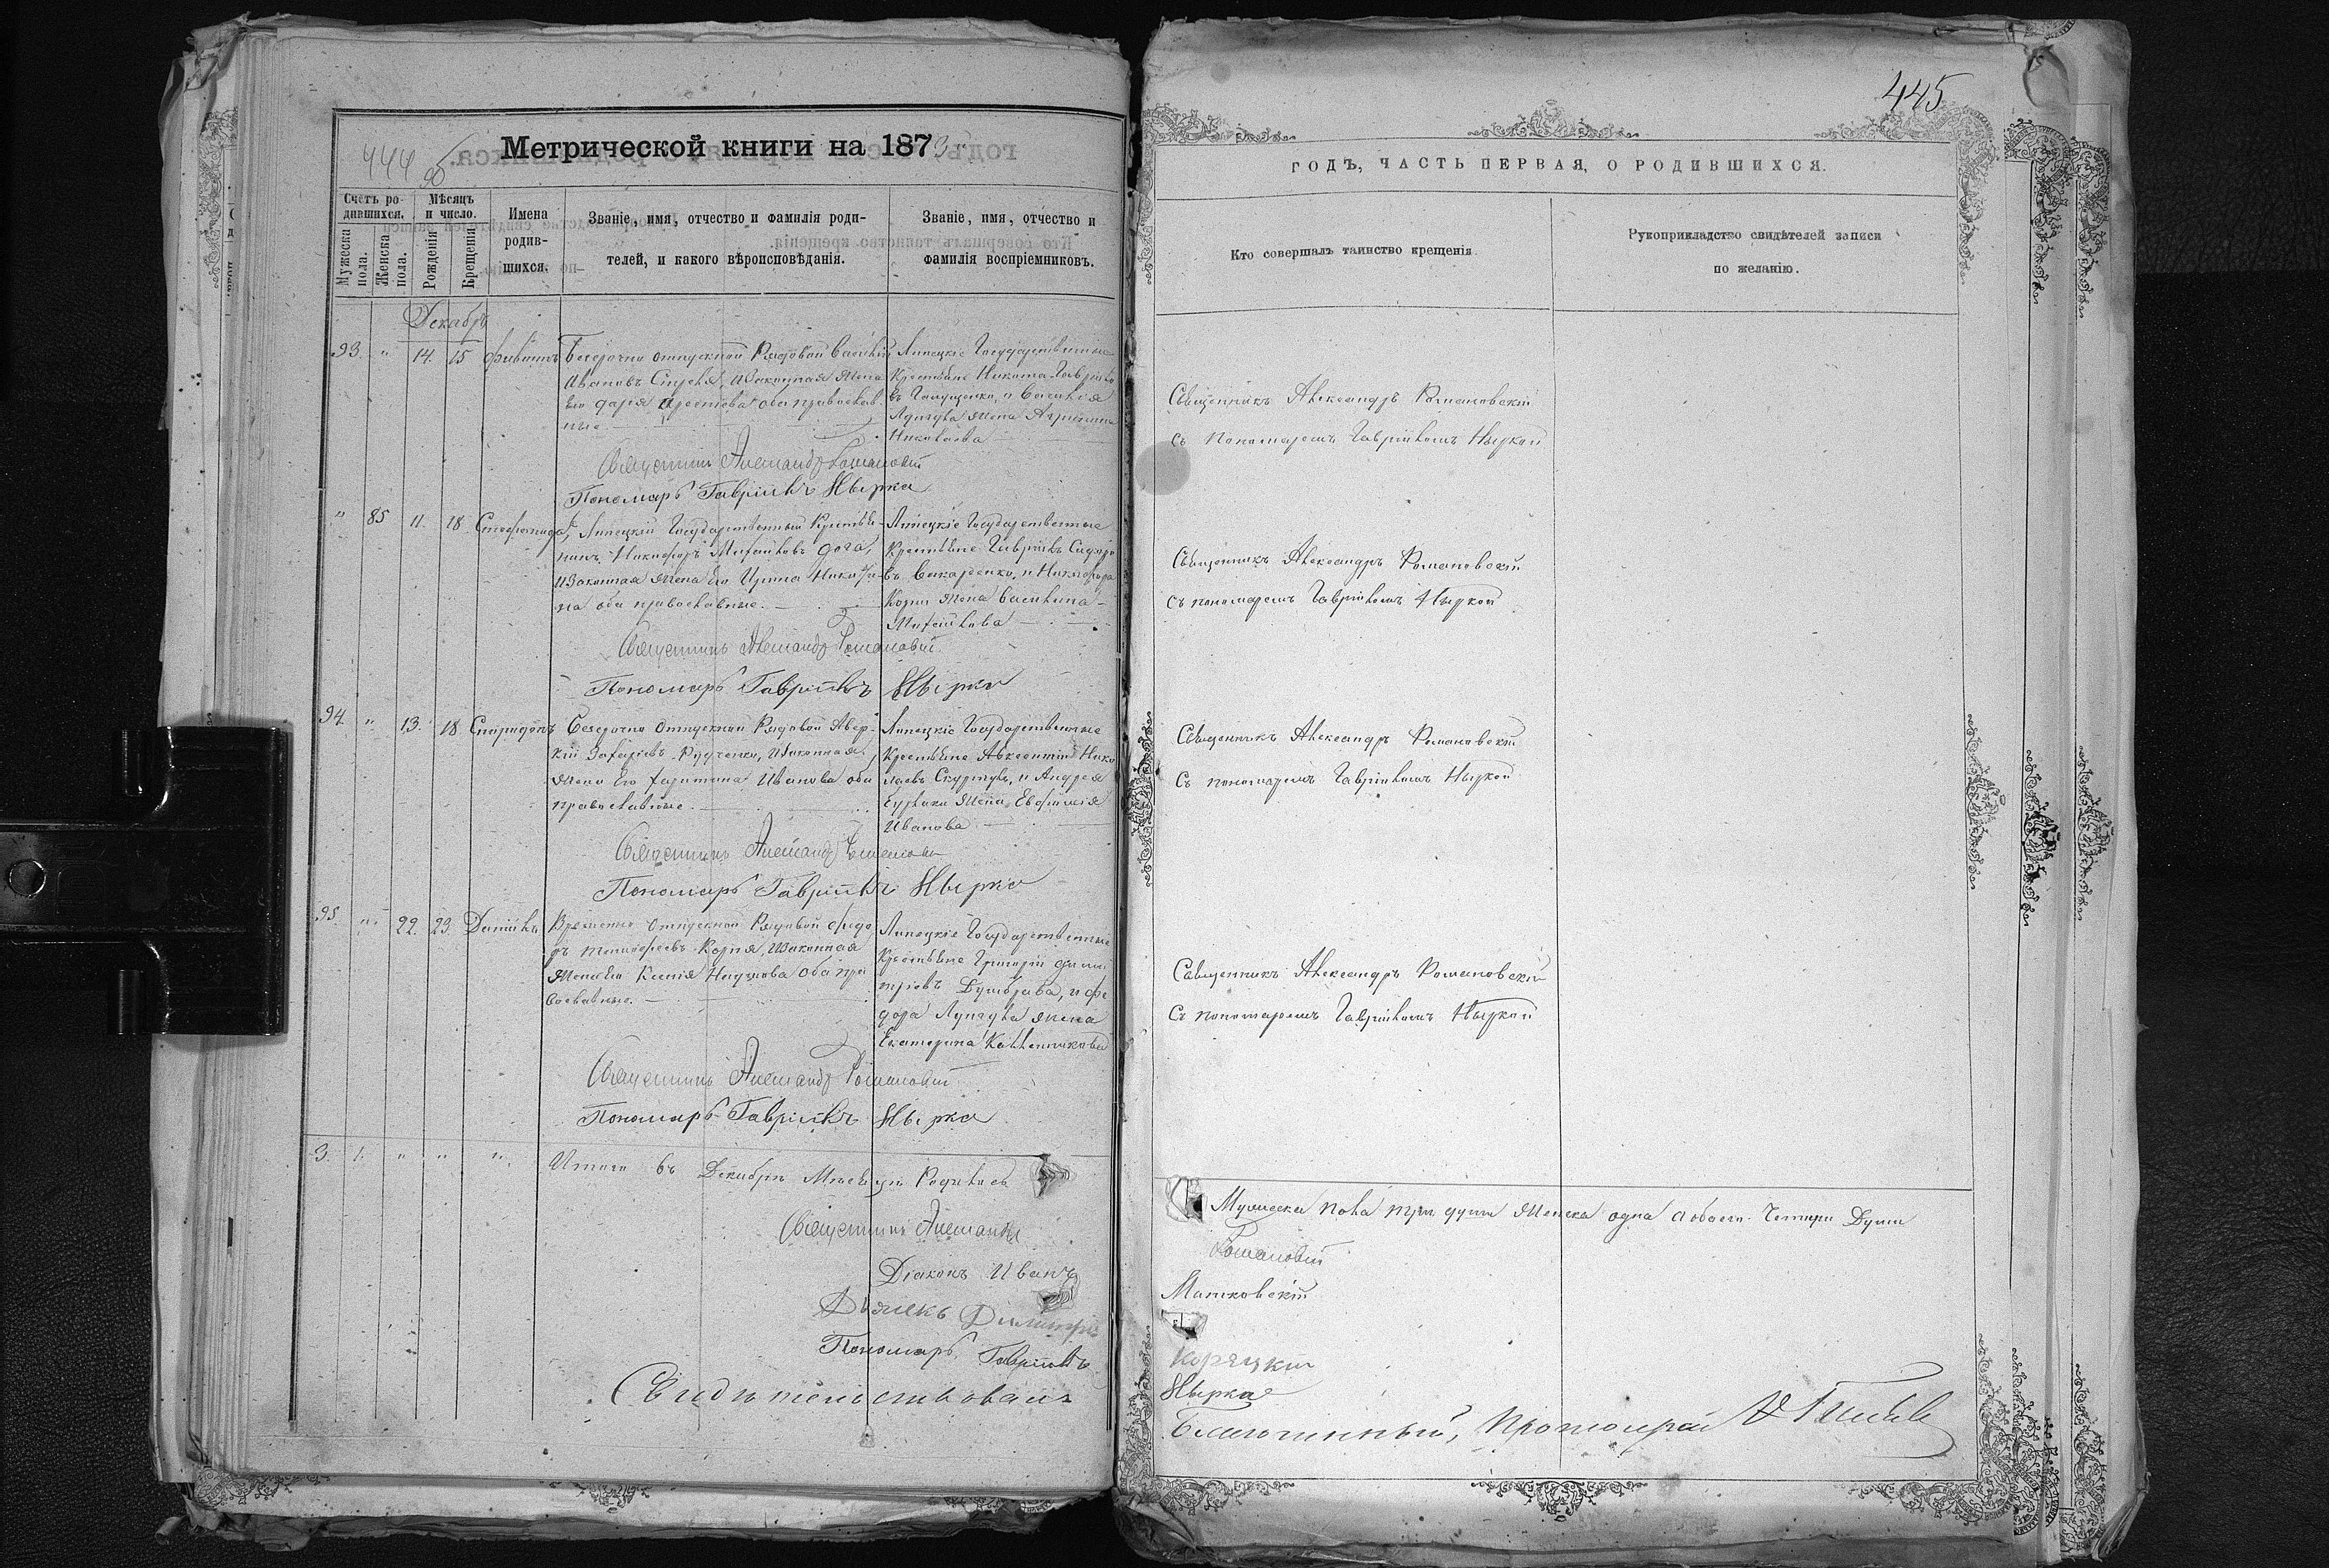 444 об
Метрической книги на 1873
Счетъ ро-
дившихся.
Мѣсяцъ
и число.
Имена
родив-
шихся.
Званіе, имя, отчество и фамилія роди-
телей, и какого вѣроисповѣданія.
Званіе, имя, отчество и
фамилія воспріемниковъ.
Мужеска
пола.
Женска
пола.
Рожденія
Крещенія
Декабрь
93. " 14. 15 Филиппъ
Безсрочно отпускной Рядовой Василій
Ивановъ и законная жена
его Дарія оба православ-
ные
Липецкіе Государственные
Крестьяне Никита Гавріило
въ и Василія
жена Агрипина
Николаева
Священникъ Александръ Романовскій
Пономарь Гавріилъ Нырка
" 85 11. 18 Степанида,
Липецкій Государственный Крестья-
нинъ Никифоръ Михайловъ Дога,
и законная жена его Ирина Никити-
на оба православные.
Липецкіе Государственные
Крестьяне Гавріилъ Сидоро
въ и Никифора
Корни жена Василина
Михайлова
Священникъ Александръ Романовскій
Пономарь Гавріилъ Нырка
94. " 13. 18. Спиридонъ
Безсрочно Отпускной Рядовой Авер-
кій Захаріевъ Руденко, и законная
жена Его Харитина Иванова оба
православные.
Липецкіе Государственные
Крестьяне Авксентій Нико
лаевъ Скуртулъ, и Андрея
жена Евфимія
Иванова
Священникъ Александръ Романовскій
Пономарь Гавріилъ Нырка
95. " 22. 23. Даніилъ
Временно отпускной Рядовой Федо
ръ Тимофеевъ Корня, и законная
жена Его Ксенія Наумова оба пра
вославные.
Липецкіе Государственные
Крестьяне Григорій Дими
тріевъ Думбрава, и Фе
дора жена
Екатерина Каленникова
Священникъ Александръ Романовскій
Пономарь Гавріилъ Нырка
3. 1. " " ".
Итого въ Декабрѣ Мѣсяцѣ Родилось
Священникъ Александръ
Діаконъ Иванъ
Дьячекъ Димитрій
Пономарь Гавріилъ
Свидѣтельствовалъ
445
ГОДЪ, ЧАСТЬ ПЕРВАЯ, О РОДИВШИХСЯ.
Кто совершалъ таинство крещенія.
Рукоприкладство свидѣтелей записи
по желанію.
Священникъ Александръ Романовскій
съ пономаремъ Гавріиломъ Ныркой
Священникъ Александръ Романовскій
съ пономаремъ Гавріиломъ Ныркой
Священникъ Александръ Романовскій
съ пономаремъ Гавріиломъ Ныркой
Священникъ Александръ Романовскій
съ пономаремъ Гавріиломъ Ныркой
Мужеска пола три души Женска одна а обоего Четыри Души
Романовскій
Матковскій
Корецкій
Нырка
Благочинный, Протоіерей